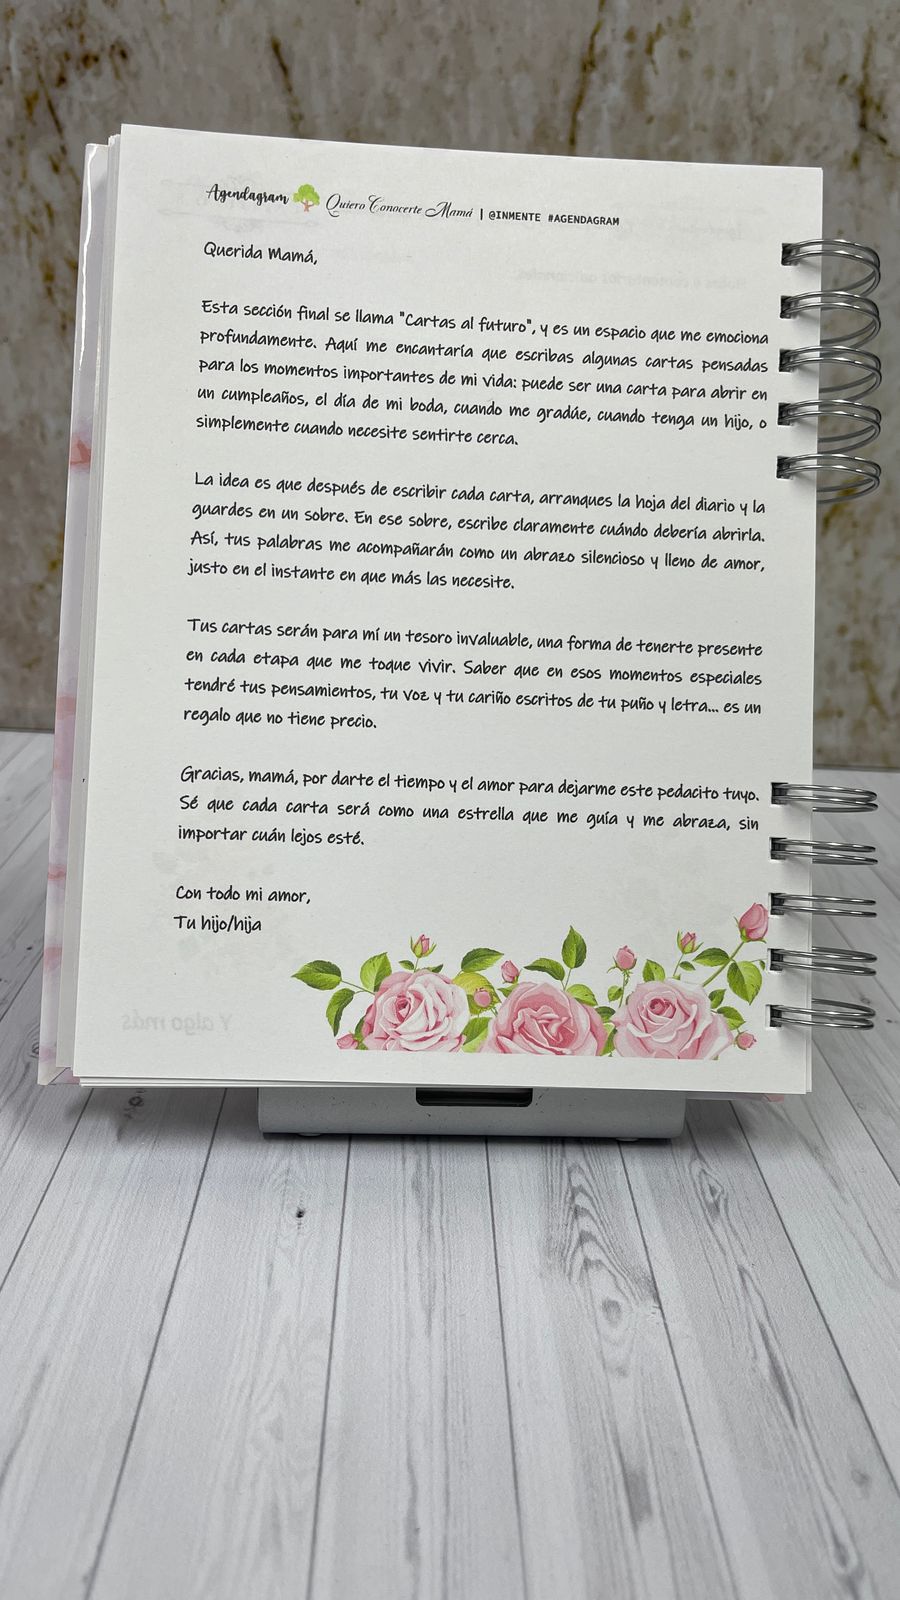 Agendagram Quiero Conocerte Mamá | @INMENTE #AGENDAGRAM
Querida Mamá,
Esta sección final se llama "Cartas al futuro", y es un espacio que me emociona
profundamente. Aquí me encantaría que escribas algunas cartas pensadas
para los momentos importantes de mi vida: puede ser una carta para abrir en
un cumpleaños, el día de mi boda, cuando me gradúe, cuando tenga un hijo, o
simplemente cuando necesite sentirte cerca.
La idea es que después de escribir cada carta, arranques la hoja del diario y la
guardes en un sobre. En ese sobre, escribe claramente cuándo debería abrirla.
Así, tus palabras me acompañarán como un abrazo silencioso y lleno de amor,
justo en el instante en que más las necesite.
Tus cartas serán para mí un tesoro invaluable, una forma de tenerte presente
en cada etapa que me toque vivir. Saber que en esos momentos especiales
tendré tus pensamientos, tu voz y tu cariño escritos de tu puño y letra... es un
regalo que no tiene precio.
Gracias, mamá, por darte el tiempo y el amor para dejarme este pedacito tuyo.
Sé que cada carta será como una estrella que me guía y me abraza, sin
importar cuán lejos esté.
Con todo mi amor,
Tu hijo/hija
Y algo más